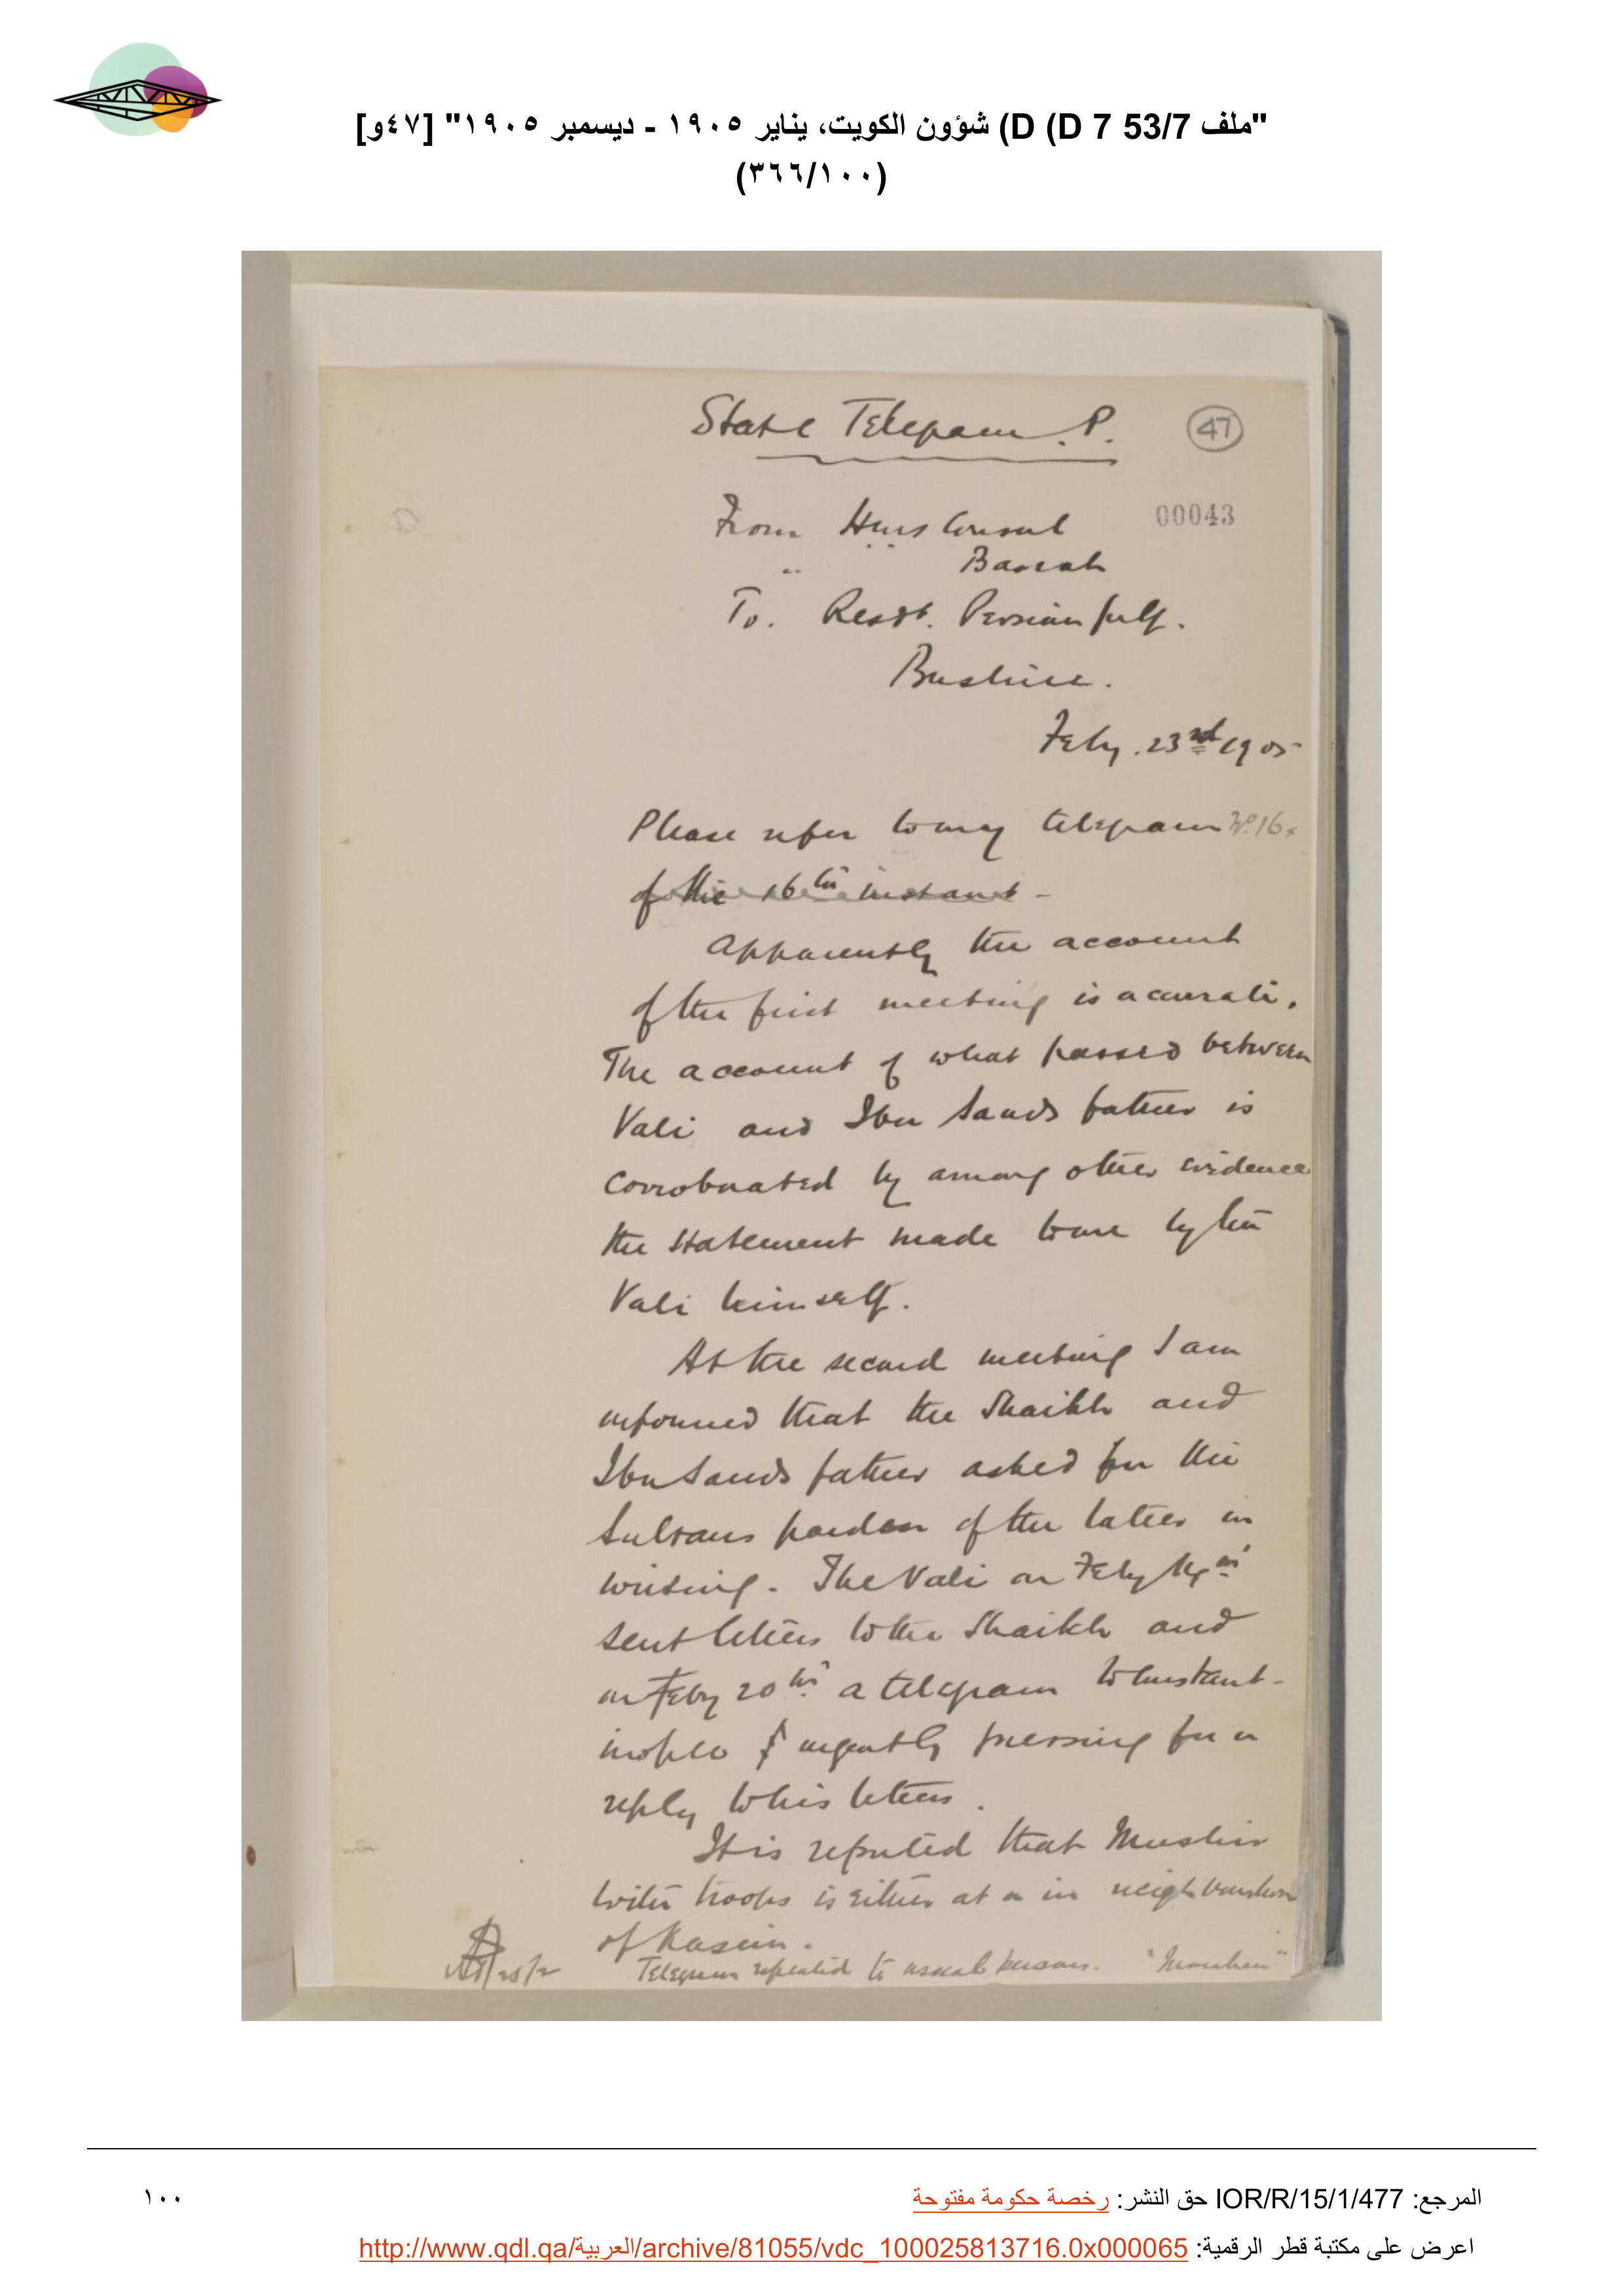 "ملف 53/7 D 7) D) شؤون الكويت، يناير ١٩٠٥ - ديسمبر ١٩٠٥" [٤٧و]
(٣٦٦/١٠٠)
State Telegram. P.
47
From HMs Consul
00043
" Basrah
To. Resdt. Persian Gulf.
Bushire.
Feby. 23rd 1905
Please refer to my telegram No. 16
of the 16th instant -
Apparently the account
of the first meeting is accurate.
The account of what passed between
Vali and Ibn Sauds father is
corroborated by among other evidence
the statement made to me by the
Vali himself.
At the second meeting I am
informed that the Shaikh and
Ibn Sauds father asked for the
Sultans pardon of the latter in
writing. The Vali on Feby 14th
sent letters to the Shaikh and
on Feby 20th a telegram to Constant-
inople urgently pressing for a
reply to his letters.
It is reported that Mushir
with troops is either at or in neighbourhood
of Kasim.
Telegram repeated to usual persons.
المرجع: IOR/R/15/1/477 حق النشر: رخصة حكومة مفتوحة
١٠٠
اعرض على مكتبة قطر الرقمية: http://www.qdl.qa/العربية/archive/81055/vdc_100025813716.0x000065